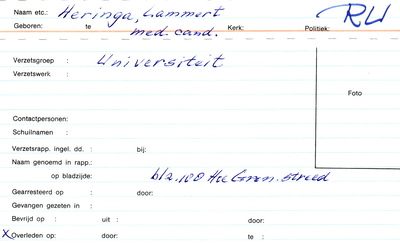 Naam etc.: Heringa, Lammert RU
Geboren: te med. cand. Kerk: Politiek:
Verzetsgroep : Universiteit
Verzetswerk :
Foto
Contactpersonen:
Schuilnamen :
Verzetsrapp. ingel. dd. : bij:
Naam genoemd in rapp.:
op bladzijde: blz. 100 Gron. streed
Gearresteerd op : door:
Gevangen gezeten in :
Bevrijd op : uit : door:
X Overleden op: door: te :